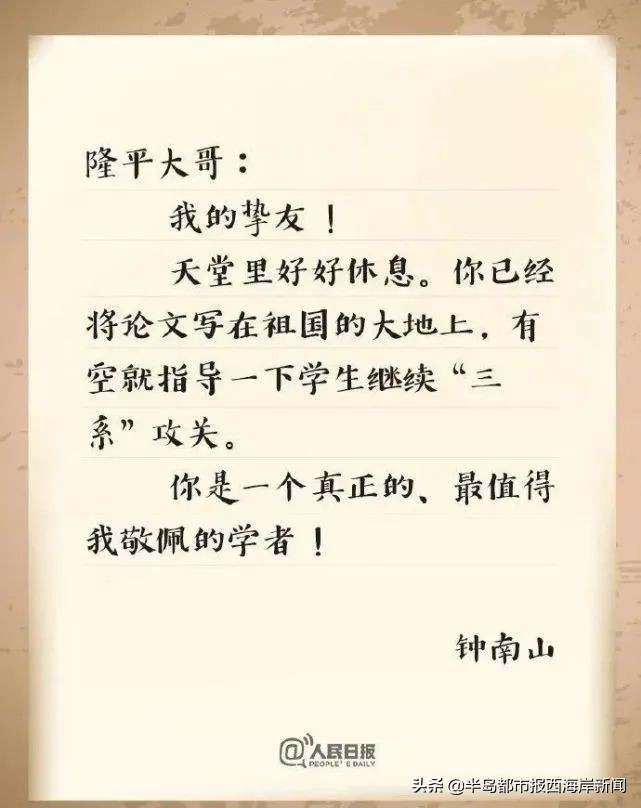 隆平大哥：
我的挚友！
天堂里好好休息。你已经
将论文写在祖国的大地上，有
空就指导一下学生继续“三
系”攻关。
你是一个真正的、最值得
我敬佩的学者！
钟南山
@人民日报
PEOPLE'S DAILY
头条 @半岛都市报西海岸新闻